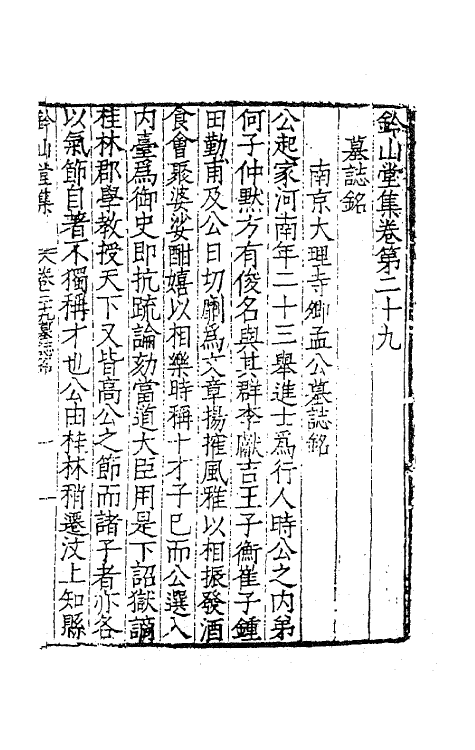 鈐山堂集卷第二十九
墓誌銘
南京大理寺卿孟公墓誌銘
公起家河南年二十三舉進士爲行人時公之内弟
何子仲默方有俊名與其群李獻吉王子衡崔子鍾
田勤甫及公日切劘爲文章揚搉風雅以相振發酒
食會聚婆娑酣嬉以相樂時稱十才子已而公選入
内臺爲御史即抗疏論劾當道大臣用是下詔獄謫
桂林郡學教授天下又皆高公之節而諸子者亦各
以氣節自著不獨稱才也公由桂林稍遷汶上知縣
鈐山堂集 卷二十九墓誌銘 一